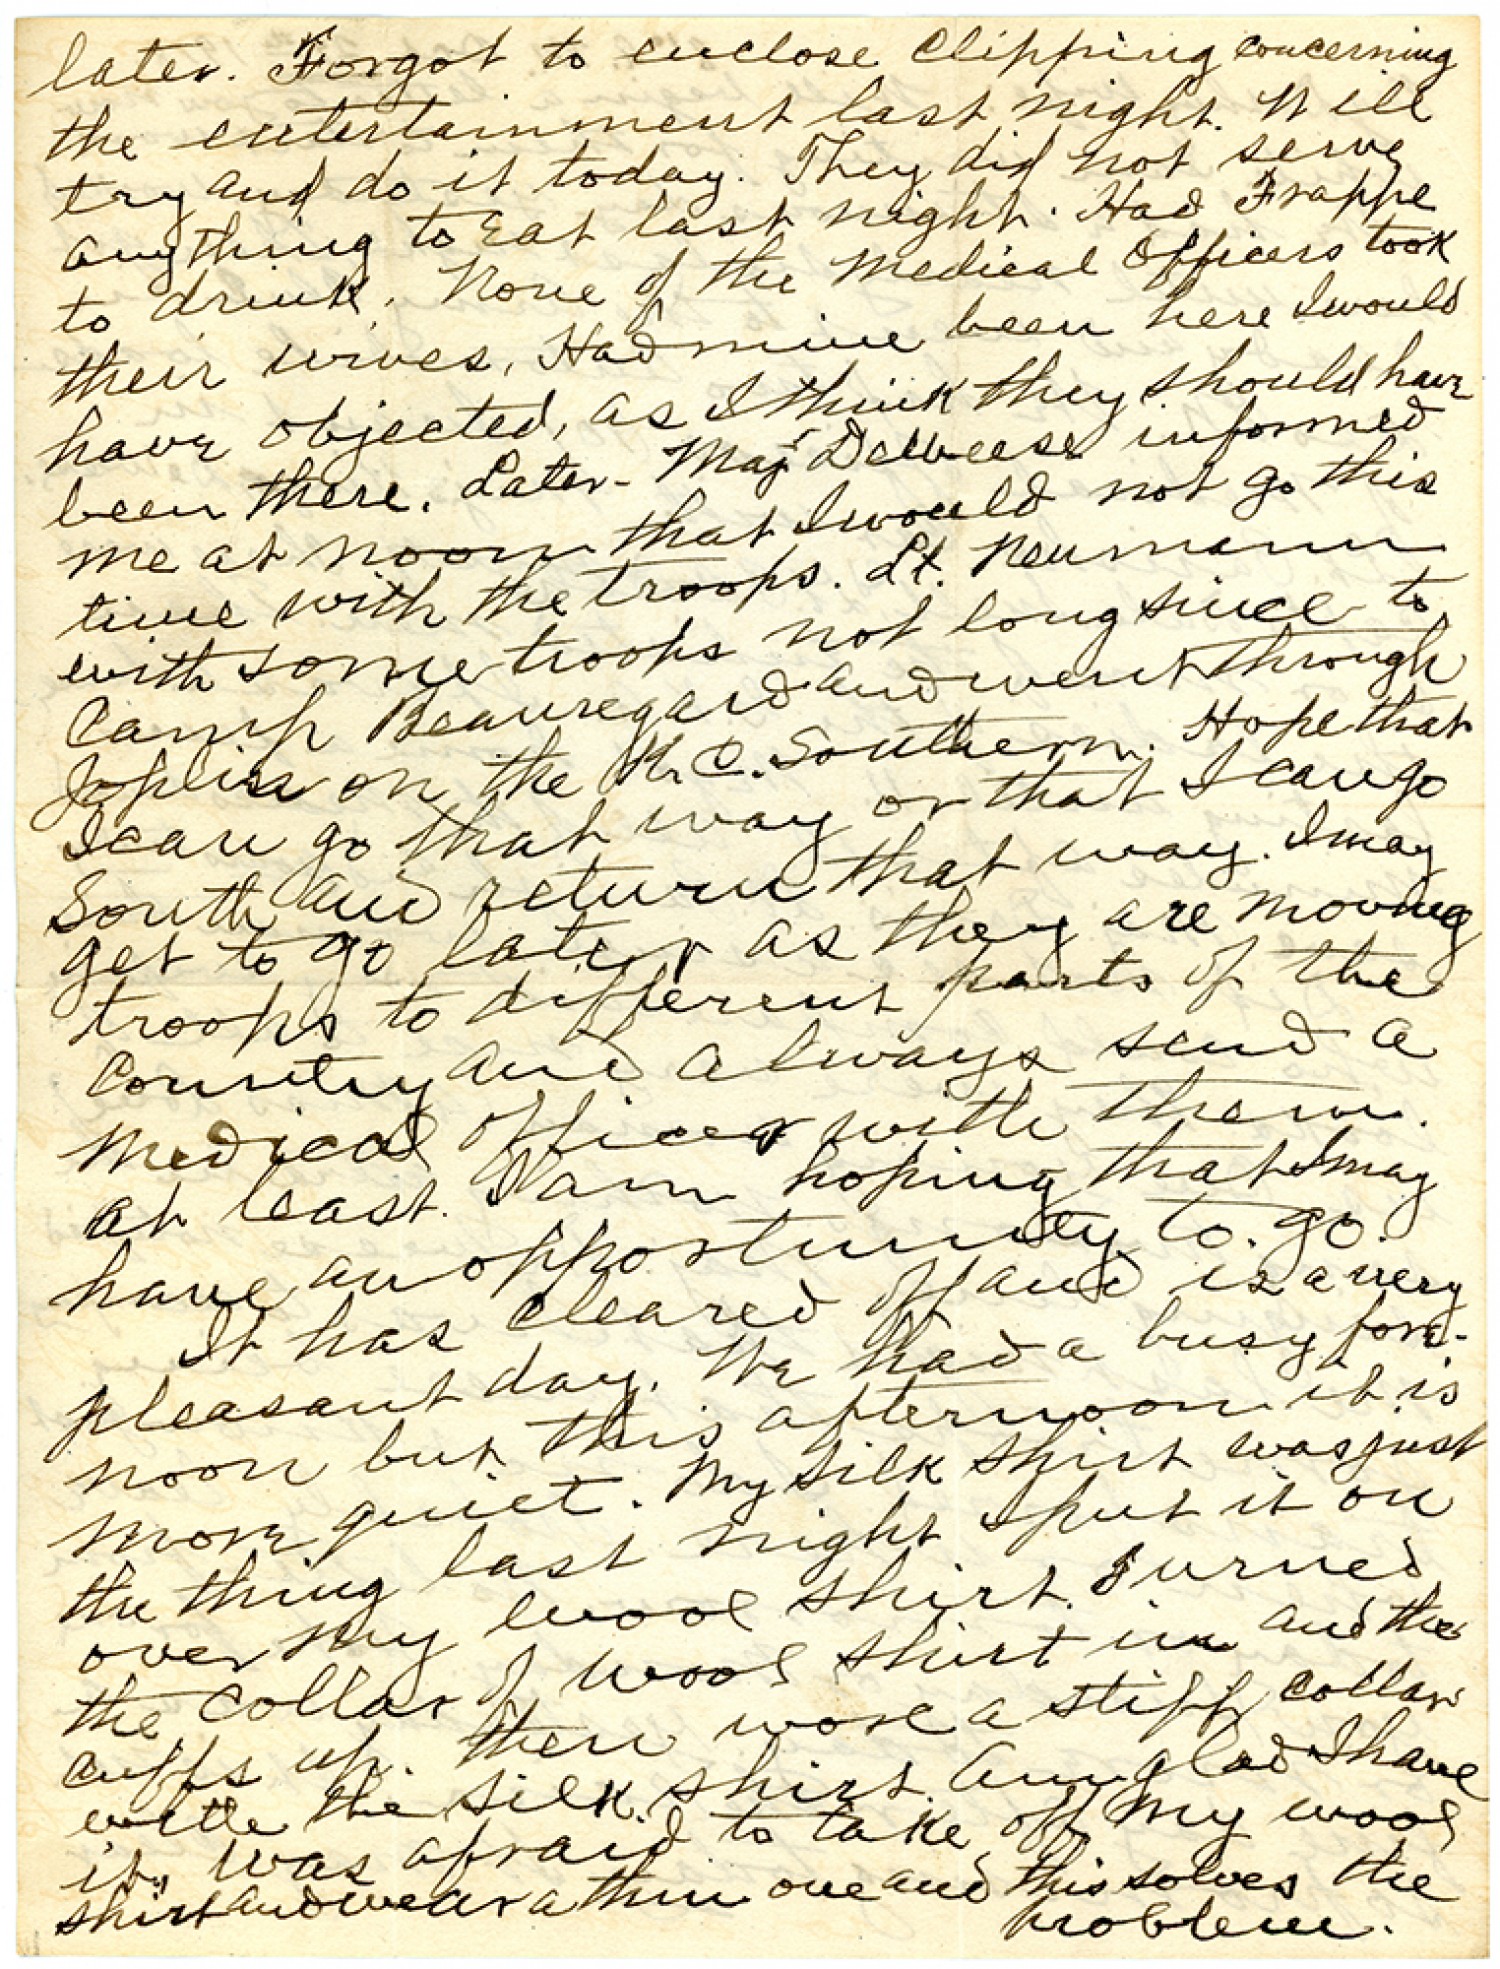 later. Forgot to enclose clipping concerning
the entertainment last night. Will
try and do it today. They did not serve
anything to eat last night. Had Frappe
to drink. None of the Medical Officers took
their wives. Had mine been here I would
have objected, as I think they should have
been there. Later- Majr DeWeese informed
me at noon that I would not go this
time with the troops. Lt. Neumann
with some troops not long since to
Camp Beauregard and went through
Joplin on the K.C. Southern. Hope that
I can go that way or that I can go
South and return that way. I may
get to go later as they are moving
troops to different parts of the
Country and always send a
Medical officer with them.
at least I am hoping that I may
have an opportunity to go.
It has cleared off and is a very
pleasant day. We had a busy fore-
noon but this afternoon it is
more quiet. My silk shirt was just
the thing last night I put it on
over my wool shirt. Turned
the collar of wool shirt in and the
cuffs up. then wore a stiff collar
with the silk shirt. Am glad I have
it, was afraid to take off my wool
shirt and wear a thin one and this solves the
problem.